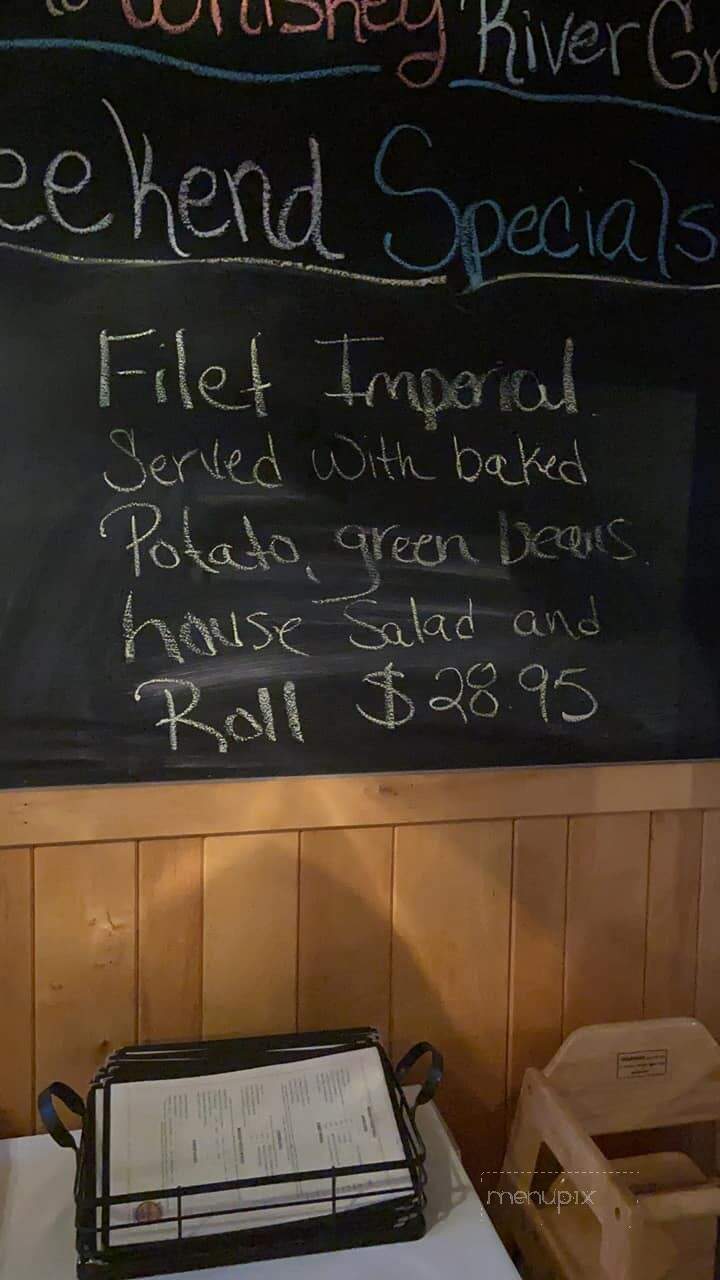 to Whiskey River Gr
eekend Specials
Filet Imperial
Served with baked
Potato, green beans
house Salad and
Roll $28.95
menupix